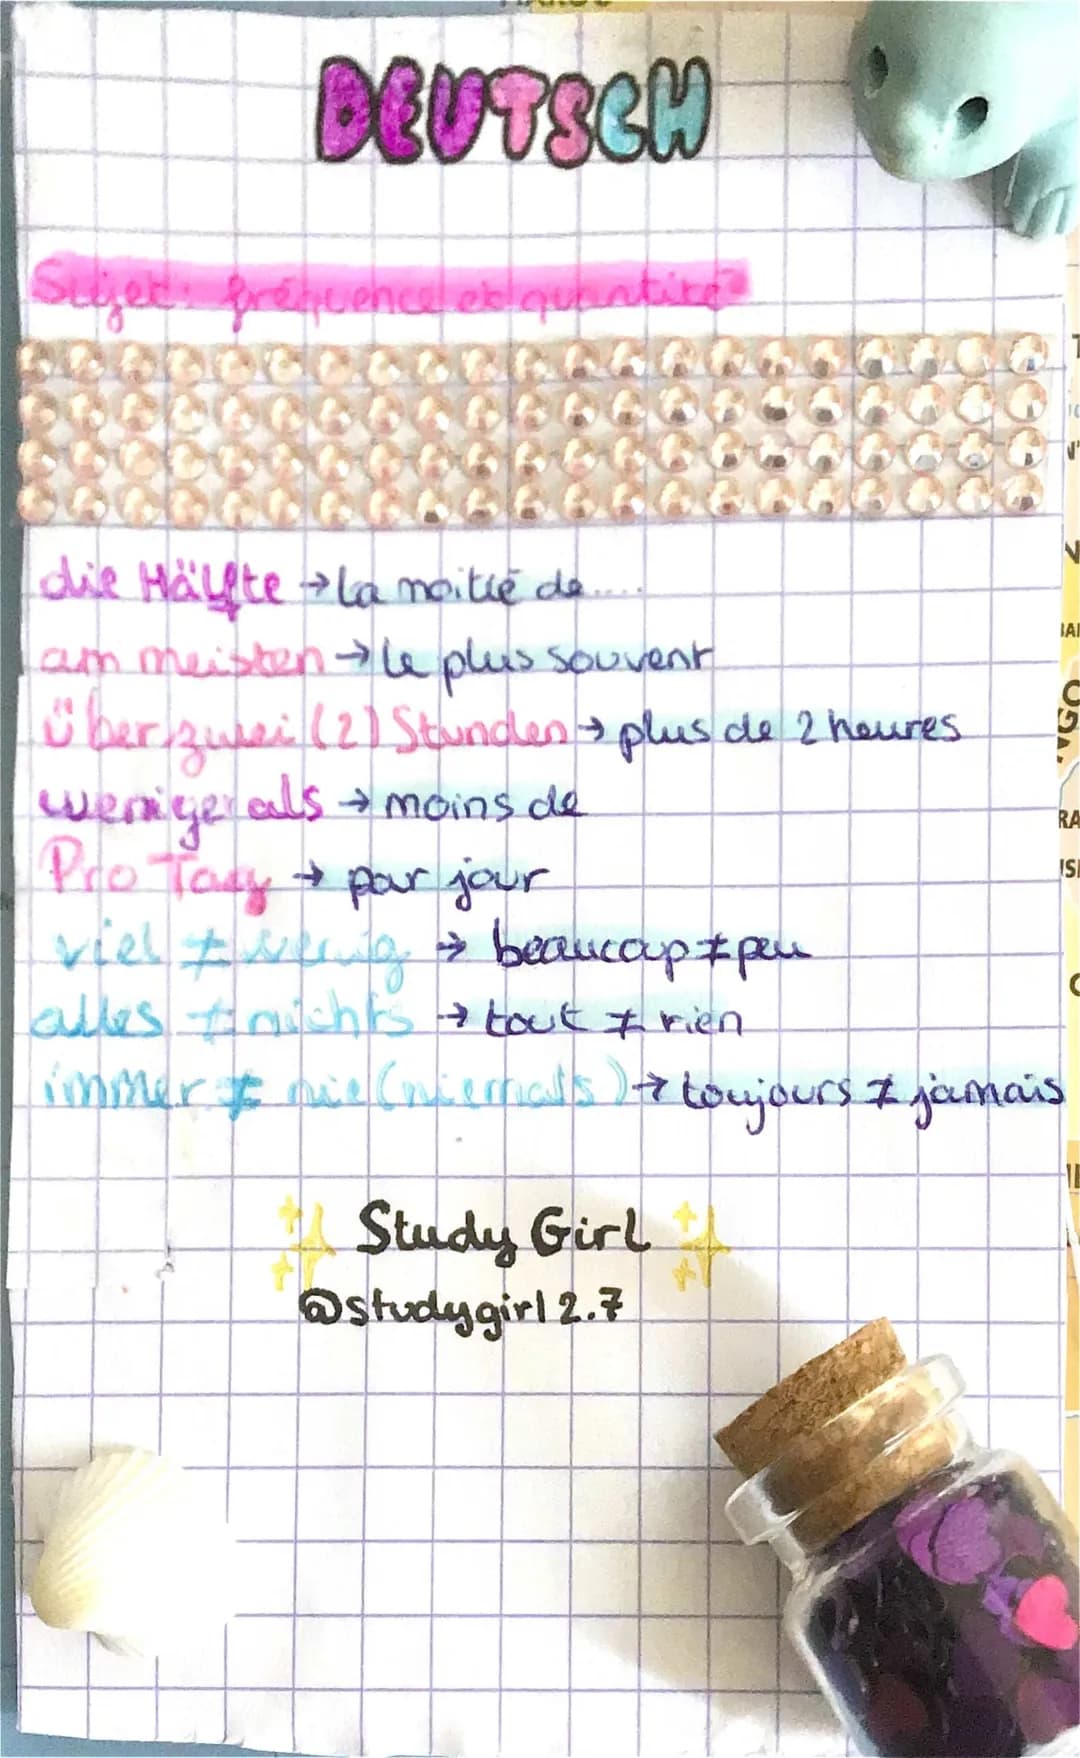 DEUTSCH
Sujet: fréquence et quantité
die Hälfte → la moitié de....
am meisten → le plus souvent
über zwei (2) Stunden → plus de 2 heures
weniger als → moins de
Pro Tag → par jour
viel ≠ wenig → beaucap ≠ peu
alles ≠ nichts → tout ≠ rien
immer ≠ nie (niemals) → toujours ≠ jamais
Study Girl
@studygirl2.7